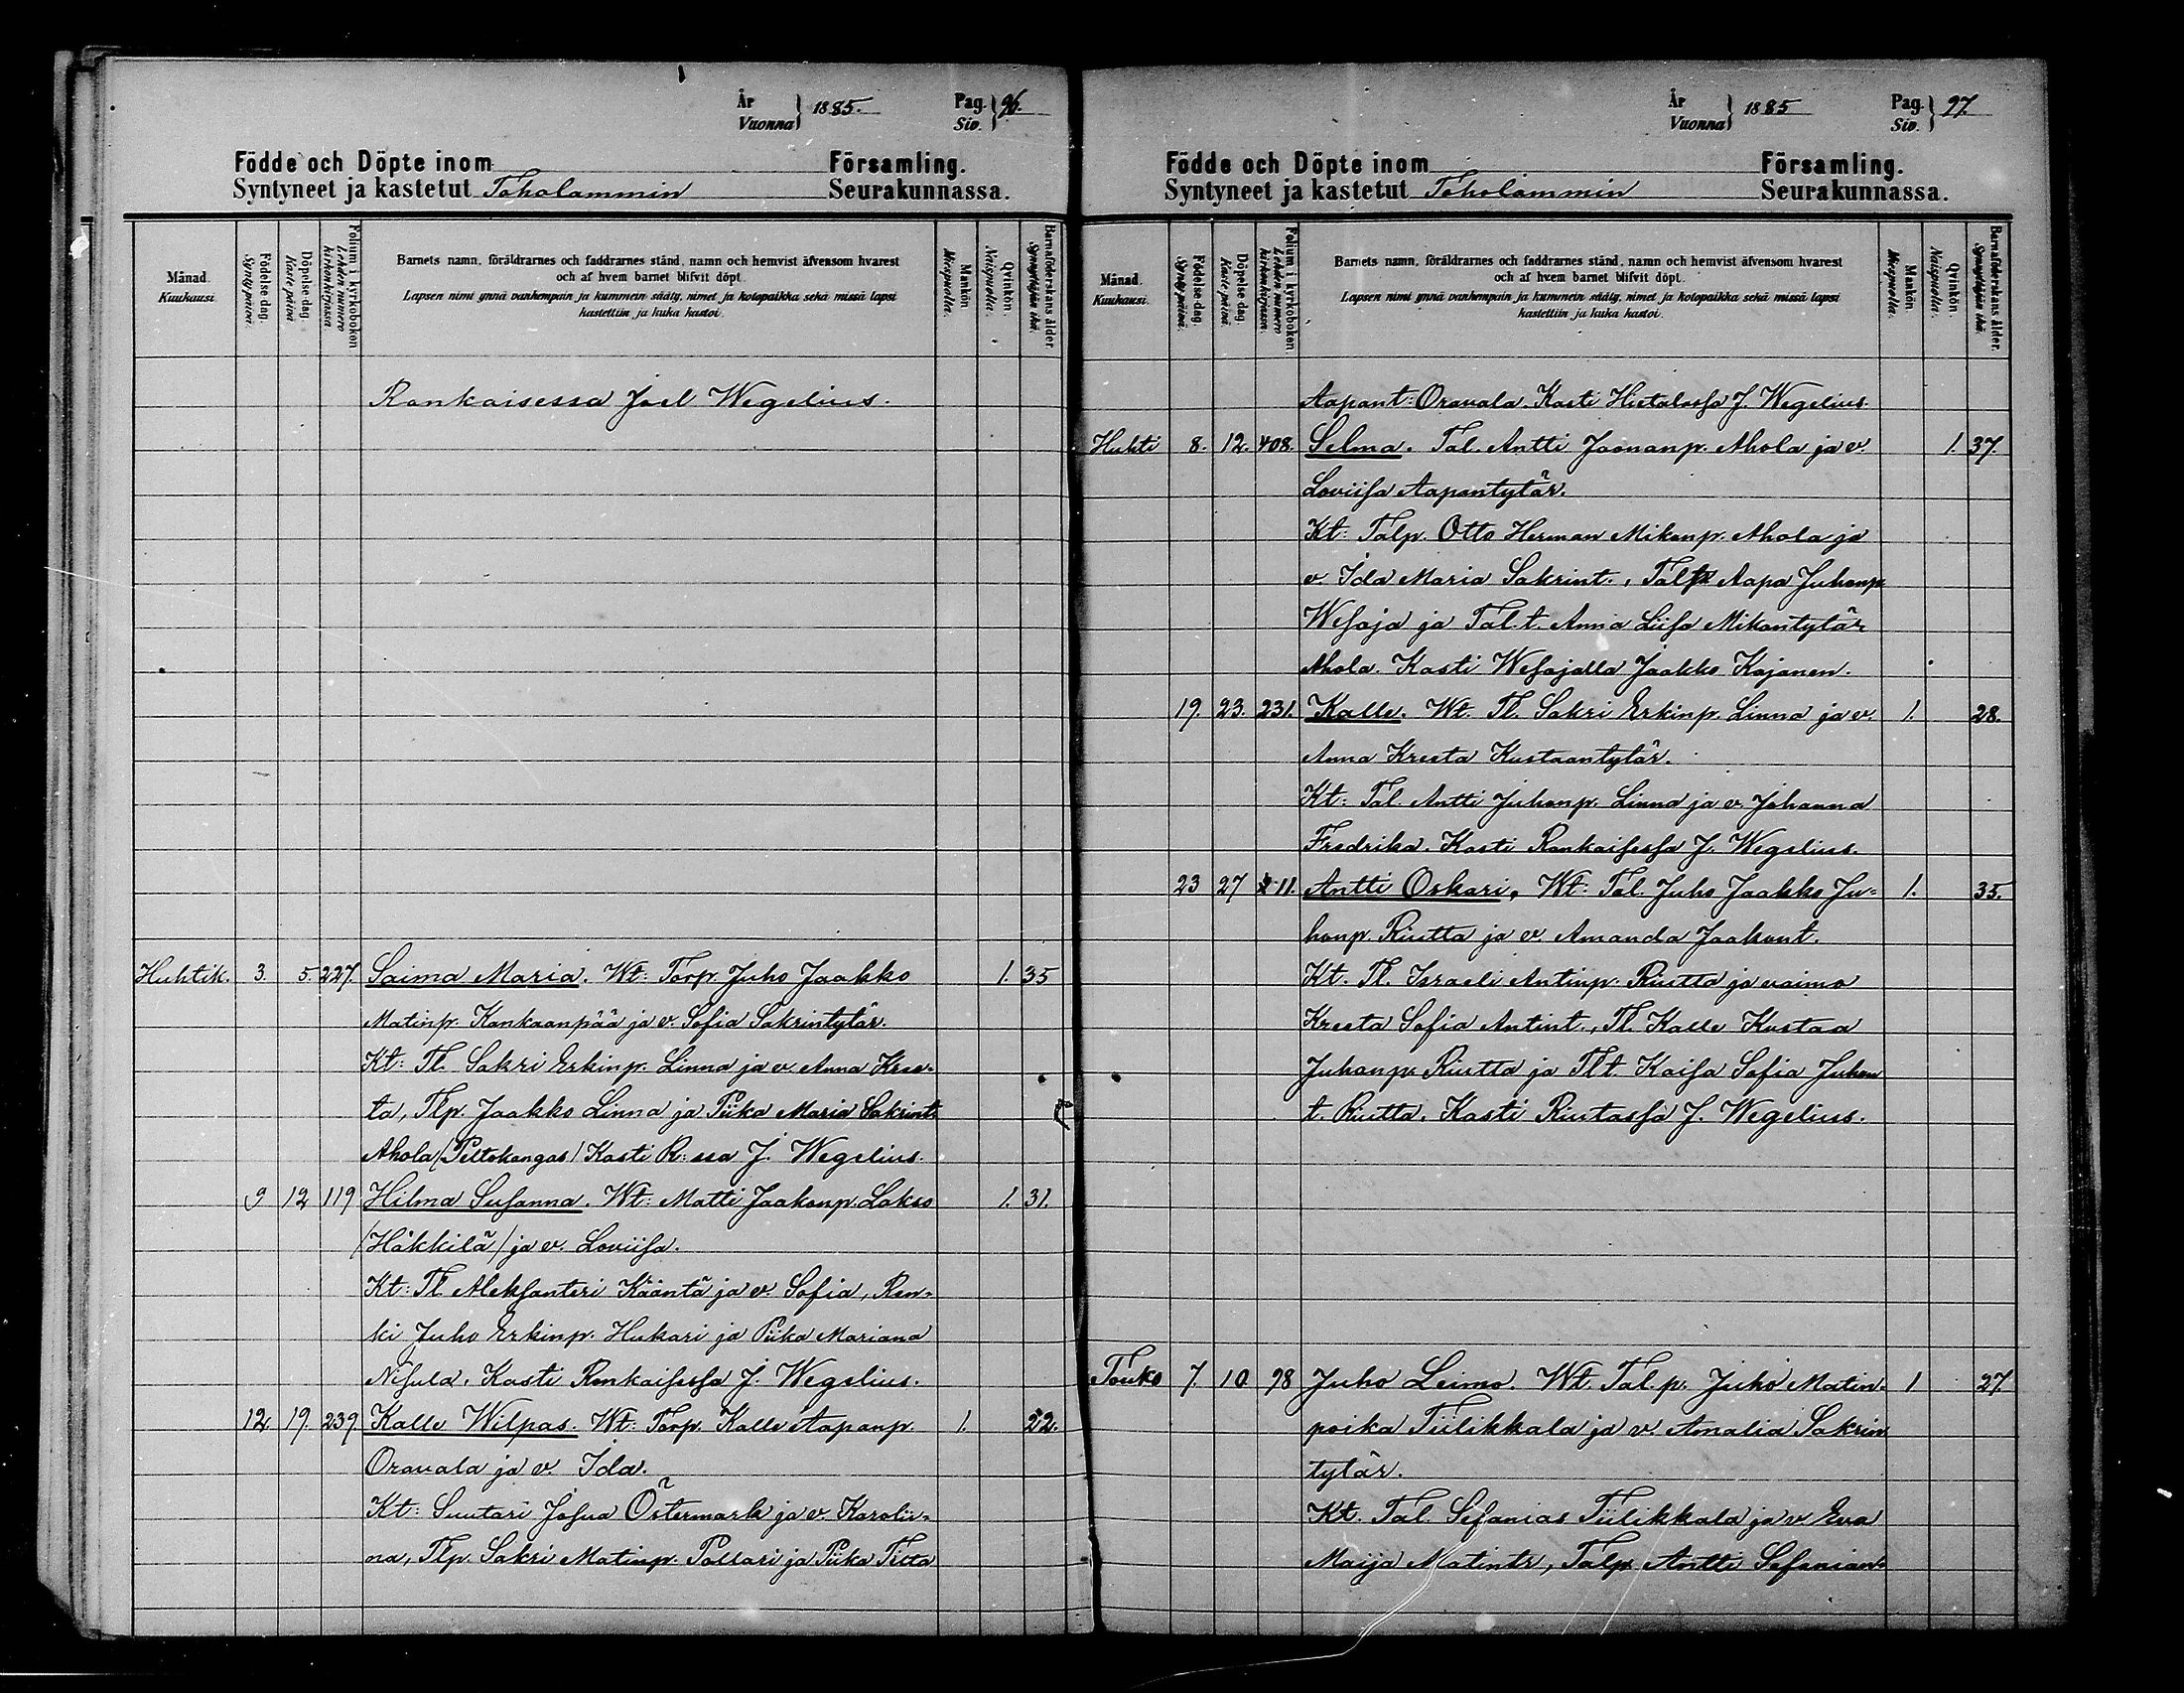 År
Vuonna } 1885. Pag.
Siv. } 96.
Födde och Döpte inom Församling.
Syntyneet ja kastetut Toholammin Seurakunnassa.
Månad. Kuukausi.
Födelse-dag. Synty päivä.
Döpelse-dag. Kaste päivä
Folium i kyrkoboken Lehden numero kirkonkirjassa.
Barnets namn, föräldrarnes och faddrarnes stånd, namn och hemvist äfvensom hvarest
och af hvem barnet blifvit döpt.
Lapsen nimi ynnä vanhempain ja kummein sääty, nimet ja kotopaikka sekä missä lapsi
kastettiin ja kuka kastoi.
Mankön Miespuolia.
Qvinkön. Naispuolia.
Barnaföderskans ålder. Synnyttäjän ikä.
Rankaisessa Joel Wegelius.
Huhtik. 3. 5. 227. Saima Maria. Wt: Torp. Juho Jaakko 1. 35
Matinp. Kankaanpää ja v. Sofia Sakrintytär.
Kt: Tl. Sakri Erkinp. Linna ja v. Anna Kree-
ta, Tlp. Jaakko Linna ja Piika Maria Sakrint.
Ahola /Peltokangas/ Kasti R:ssa J. Wegelius.
9 12 119 Hilma Susanna. Wt: Matti Jaakonp. Lakso 1. 31.
/Häkkilä/ ja v. Loviisa.
Kt: Tl. Aleksanteri Kääntä ja v. Sofia, Ren-
ki Juho Erkinp. Hukari ja Piika Mariana
Nisula. Kasti Rankaisessa J. Wegelius.
12. 19. 239. Kalle Wilpas. Wt: Torp. Kalle Aapanp. 1. 22.
Oravala ja v. Ida.
Kt: Suutari Josua Östermark ja v. Karolii-
na, Tlp. Sakri Matinp. Pollari ja Piika Fiita
År
Vuonna } 1885 Pag.
Siv. } 97.
Födde och Döpte inom Församling.
Syntyneet ja kastetut Toholammin Seurakunnassa.
Månad. Kuukausi.
Födelse-dag. Synty päivä.
Döpelse-dag. Kaste päivä.
Folium i kyrkoboken. Lehden numero kirkonkirjassa.
Barnets namn, föräldrarnes och faddrarnes stånd, namn och hemvist äfvensom hvarest
och af hvem barnet blifvit döpt.
Lapsen nimi ynnä vanhempain ja kummein sääty, nimet ja kotopaikka sekä missä lapsi
kastettiin ja kuka kastoi.
Mankön. Miespuolia.
Qvinkön. Naispuolia.
Barnaföderskans ålder. Synnyttäjän ikä.
Aapant: Oravala. Kasti Hietalassa J. Wegelius.
Huhti 8. 12. 408. Selma. Tal. Antti Joonanp. Ahola ja v. 1. 37.
Loviisa Aapantytär.
Kt: Talp. Otto Herman Mikonp. Ahola ja
v. Ida Maria Sakrint., Talp Aapa Juhonp
Wesaja ja Tal.t. Anna Liisa Mikontytär
Ahola. Kasti Wesajalla Jaakko Kajanen.
19. 23. 231. Kalle. Wt. Tl. Sakri Erkinp. Linna ja v. 1. 28.
Anna Kreeta Kustaantytär.
Kt: Tal. Antti Juhonp. Linna ja v. Johanna
Fredrika. Kasti Rankaisessa J. Wegelius.
23 27 211. Antti Oskari, Wt: Tal. Juho Jaakko Ju- 1. 35.
honp. Riutta ja v. Amanda Jaakont.
Kt. Tl. Israeli Antinp. Riutta ja vaimo
Kreeta Sofia Antint., Tl. Kalle Kustaa
Juhonp. Riutta ja Tl t. Kaisa Sofia Juhon
t. Riutta. Kasti Riutassa J. Wegelius.
Touko 7. 10 98 Juho Leimo. Wt. Tal. p. Juho Matin- 1 27
poika Tiilikkala ja v. Amalia Sakrin
tytär.
Kt. Tal. Sefanias Tiilikkala ja v Eva
Maija Matintr, Talp. Antti Sefanian-